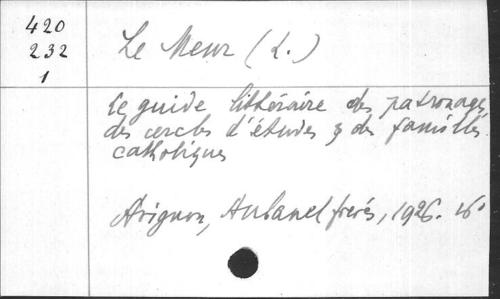 420
232
1
Le Meur (L.)
Le guide littéraire des patronages,
des cercles d'études & des familles
catholiques
Avignon, Aubanel frères, 1926. 16°